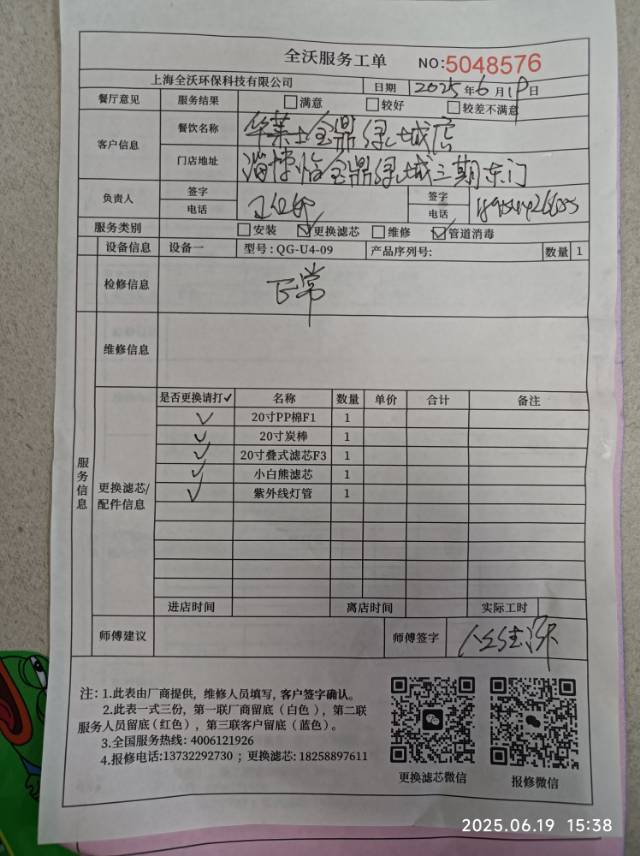 全沃服务工单 NO:5048576
上海全沃环保科技有限公司 日期 2025年6月19日
餐厅意见 服务结果 □满意 □较好 □较差不满意
客户信息 餐饮名称 华莱士金鼎绿城店
门店地址 淄博 金鼎绿城三期东门
负责人 签字 签字
电话 电话
服务类别 □安装 ☑更换滤芯 □维修 ☑管道消毒
设备信息 设备一 型号:QG-U4-09 产品序列号: 数量 1
检修信息 正常
维修信息
服务信息
更换滤芯/配件信息
是否更换请打✓ 名称 数量 单价 合计 备注
✓ 20寸PP棉F1 1
✓ 20寸炭棒 1
✓ 20寸叠式滤芯F3 1
✓ 小白熊滤芯 1
✓ 紫外线灯管 1
进店时间 离店时间 实际工时
师傅建议 师傅签字
注:1.此表由厂商提供,维修人员填写,客户签字确认。
2.此表一式三份,第一联厂商留底(白色),第二联
服务人员留底(红色),第三联客户留底(蓝色)。
3.全国服务热线:4006121926
4.报修电话:13732292730;更换滤芯:18258897611
更换滤芯微信 报修微信
2025.06.19 15:38